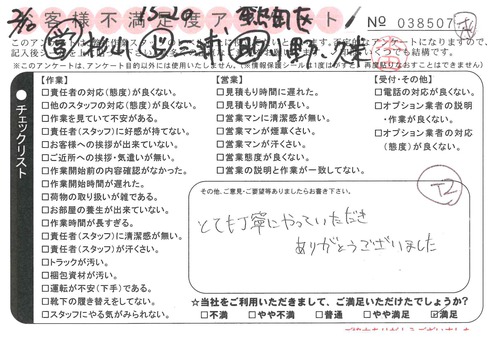 お客様不満足度アンケート
No 038507
※このアンケートは、アンケート目的以外には使用いたしません。(※情報保護シールは1度はがすと、再度貼りなおすことはできません)
チェックリスト
【作業】
□責任者の対応(態度)が良くない。
□他のスタッフの対応(態度)が良くない。
□作業を見ていて不安がある。
□責任者(スタッフ)に好感が持てない。
□お客様への挨拶が出来ていない。
□ご近所への挨拶・気遣いが無い。
□作業開始前の内容確認がなかった。
□作業開始時間が遅れた。
□荷物の取り扱いが雑である。
□お部屋の養生が出来ていない。
□作業時間が長すぎる。
□責任者(スタッフ)に清潔感が無い。
□責任者(スタッフ)が汗くさい。
□トラックが汚い。
□梱包資材が汚い。
□運転が不安(下手)である。
□靴下の履き替えをしてない。
□スタッフにやる気がみられない。
【営業】
□見積もり時間に遅れた。
□見積もり時間が長い。
□営業マンに清潔感が無い。
□営業マンが煙草くさい。
□営業マンが汗くさい。
□営業態度が良くない。
□営業の説明と作業が一致してない。
【受付・その他】
□電話の対応が良くない。
□オプション業者の説明
・作業が良くない。
□オプション業者の対応
(態度)が良くない。
その他、ご意見・ご要望等ありましたらお書き下さい。
T2
とても丁寧にやっていただき
ありがとうございました
☆当社をご利用いただきまして、ご満足いただけたでしょうか?
□不満 □やや不満 □普通 □やや満足 ☑満足